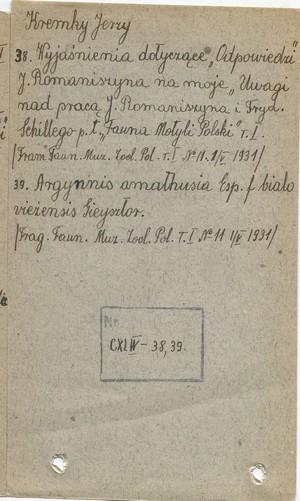 Kremky Jerzy
38. Wyjaśnienia dotyczące „Odpowiedzi"
J. Romaniszyna na moje „Uwagi
nad pracą J. Romaniszyna i Fryd.
Schillego p.t. „Fauna Motyli Polski" T. I.
/Fram. Faun. Muz. Zool. Pol. T. I № 11. 1/V 1931/
39. Argynnis amathusia Esp. f. biało
vieżensis Gieysztor.
/Frag. Faun. Muz. Zool. Pol. T. I № 11 1/V 1931/
Nr.
CXLIV - 38, 39.